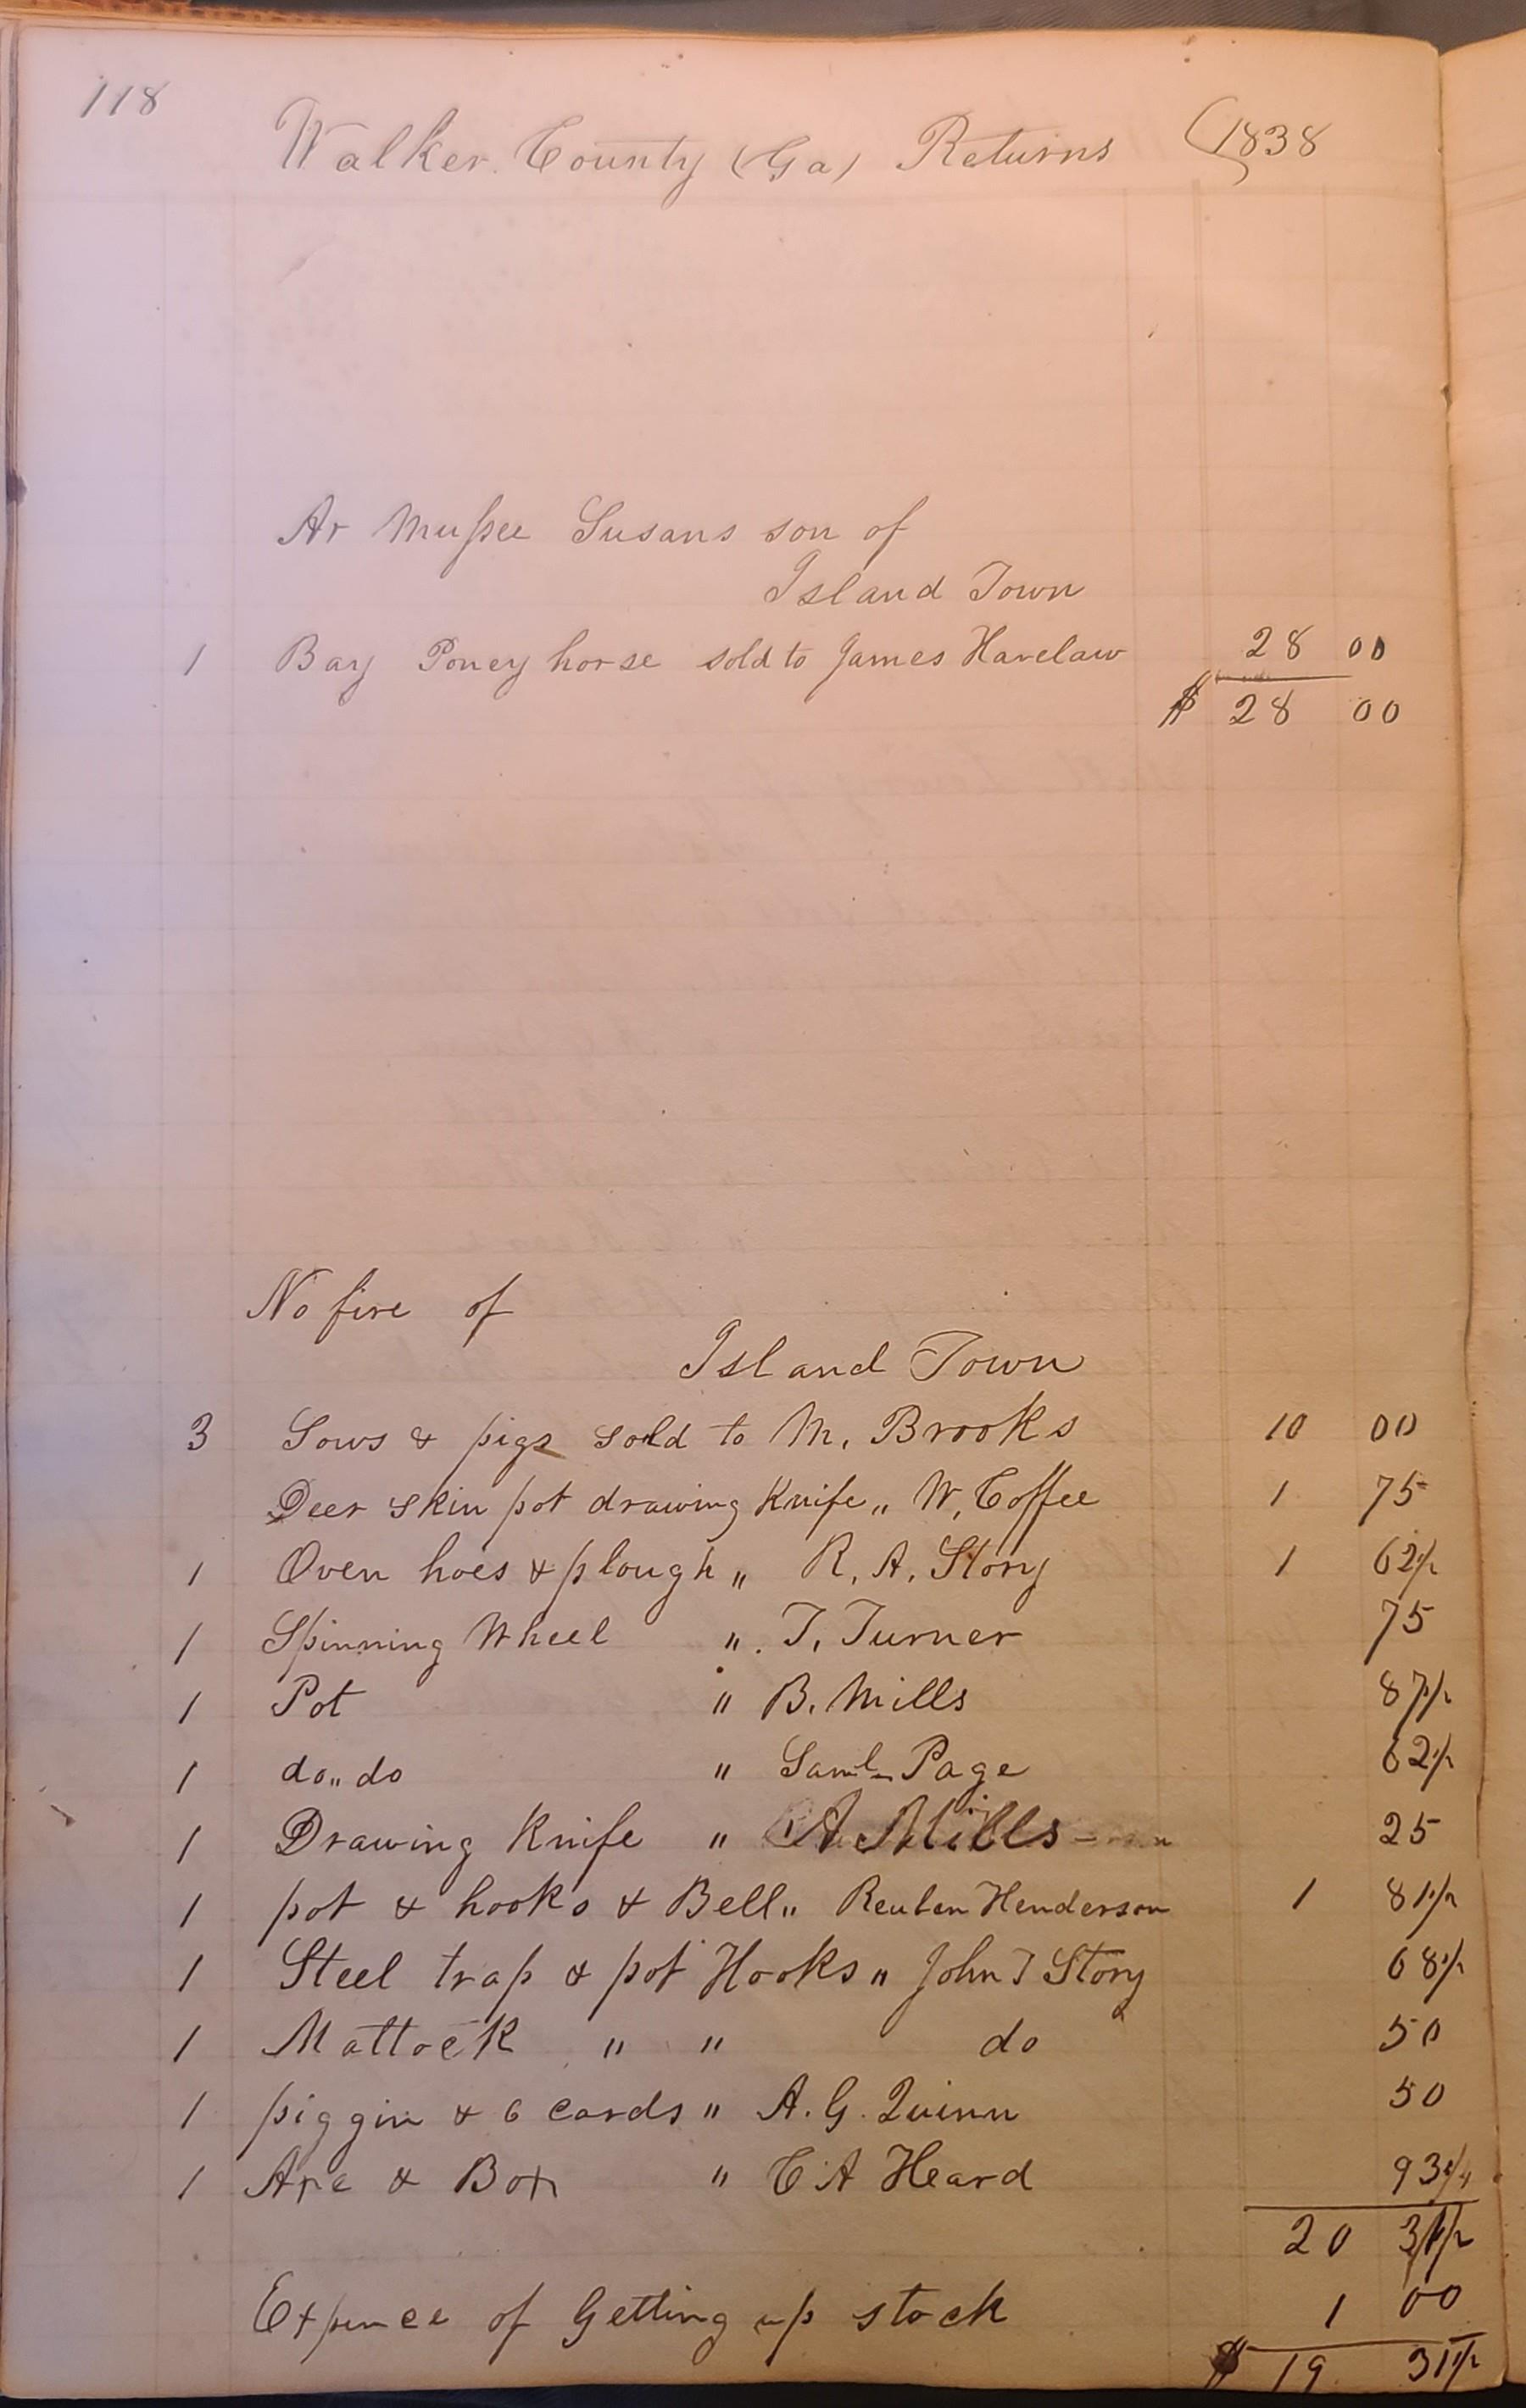 118
Walker County (Ga) Returns (1838
Ar Mussee Susans son of
Island Town
1 Bay Poney horse sold to James Havelaw 28 00
$ 28 00
No fire of
Island Town
3 Sows & pigs sold to M. Brooks 10 00
Deer skin pot drawing Knife " W. Coffee 1 75
1 Oven hoes & plough " R. A. Story 1 62 1/2
1 Spinning Wheel " T. Turner 75
1 Pot " B. Mills 87 1/2
1 do " do " Saml Page 62 1/2
1 Drawing Knife " A Mills 25
1 pot & hooks & Bell " Reuben Henderson 1 81 1/2
1 Steel trap & pot Hooks " John T Story 68 1/2
1 Mattock " " do 50
1 piggin & 6 cards " A. G. Quinn 50
1 Axe & Box " C A Heard 93 3/4
20 31 1/2
Expence of Getting up stock 1 00
$ 19 31 1/2